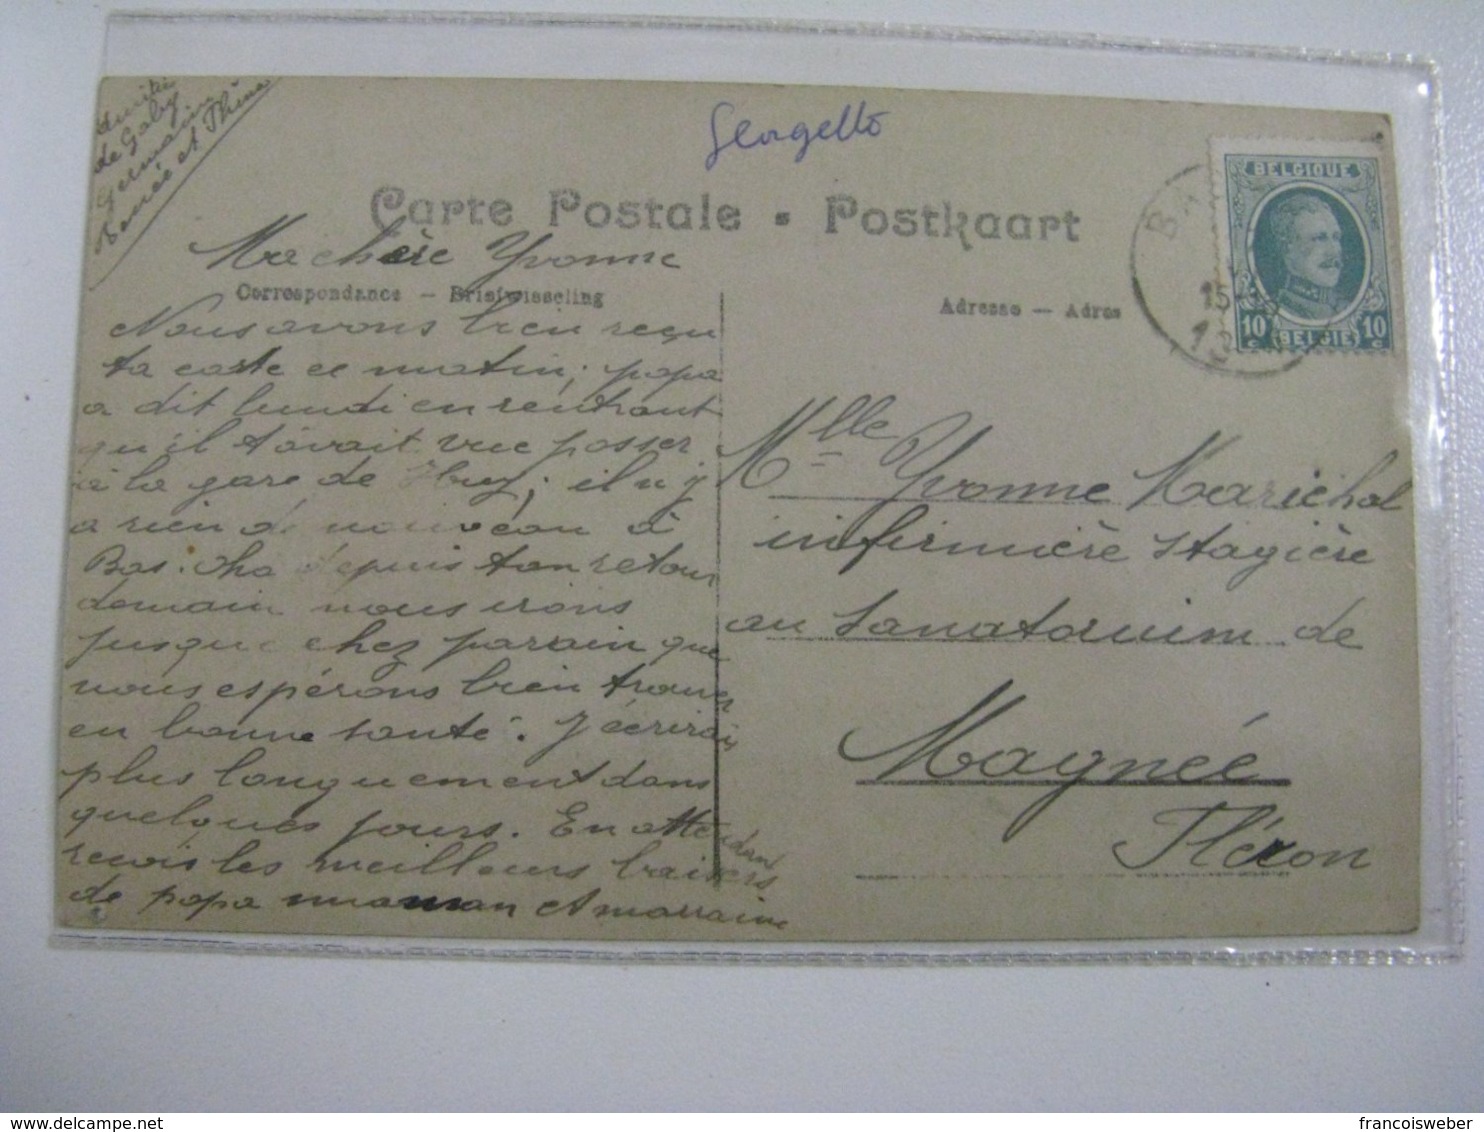 Amitiés
de Gaby
Germain
Renée et Théna
Georgette
Carte Postale - Postkaart
Ma chère Yvonne
Correspondance — Briefwisseling
Adresse — Adres
BELGIQUE
10 c
10 c
(BELGIE)
BA
15-
13
Nous avons bien reçu
ta carte ce matin; papa
a dit lundi en rentrant
qu'il t'avait vue passer
à la gare de Huy; il n'y
a rien de nouveau à
Bas. Oha depuis ton retour
demain nous irons
jusque chez parrain que
nous espérons bien trouver
en bonne santé. J'écrirai
plus longuement dans
quelques jours. En attendant
reçois les meilleurs baisers
de papa maman et marraine
Mlle Yvonne Marichal
infirmière stagière
au Sanatorium de
Magnée
Fléron
delcampe.net
francoisweber